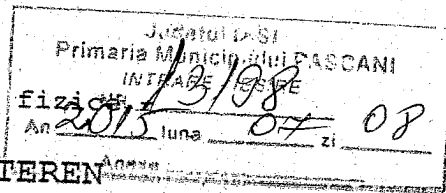 Judetul IASI
Primaria Municipiului PASCANI
INTRARE IESIRE
fizice 13198
An 2015 luna 07 zi 08
Anexe
TEREN